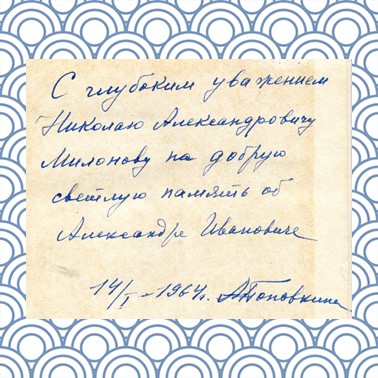 С глубоким уважением
Николаю Александровичу
Милонову на добрую
светлую память об
Александре Ивановиче
14/I-1964г. А.Поповкина